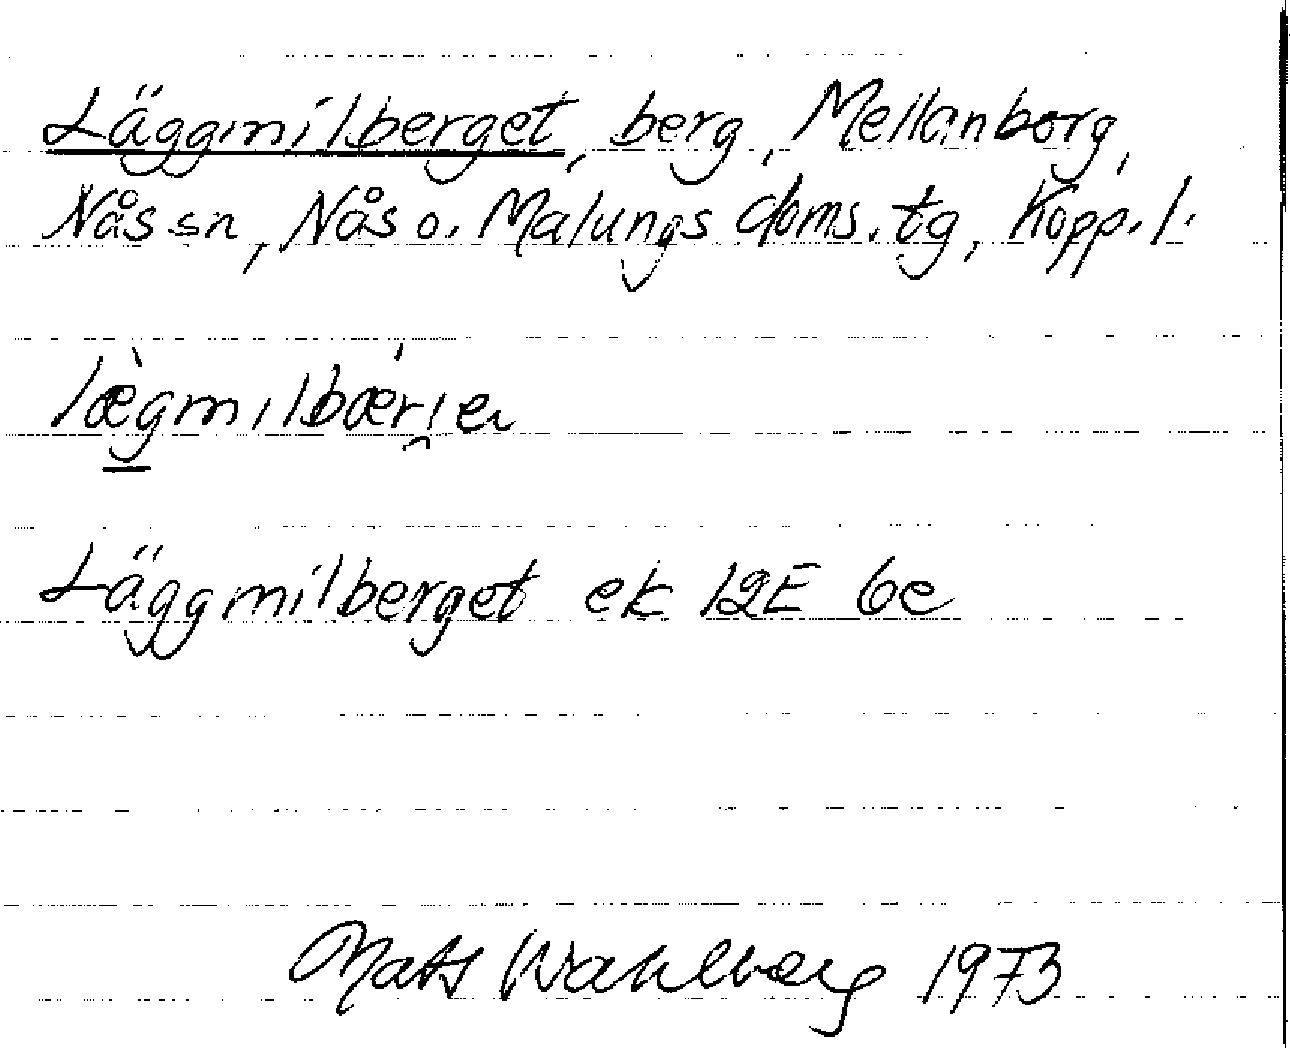 Läggmilberget, berg, Mellanborg,
Nås sn, Nås o. Malungs doms. tg, Kopp. l.
lægmilbær̯ien
Läggmilberget ek 12E 6e
Mats Wahlberg 1973